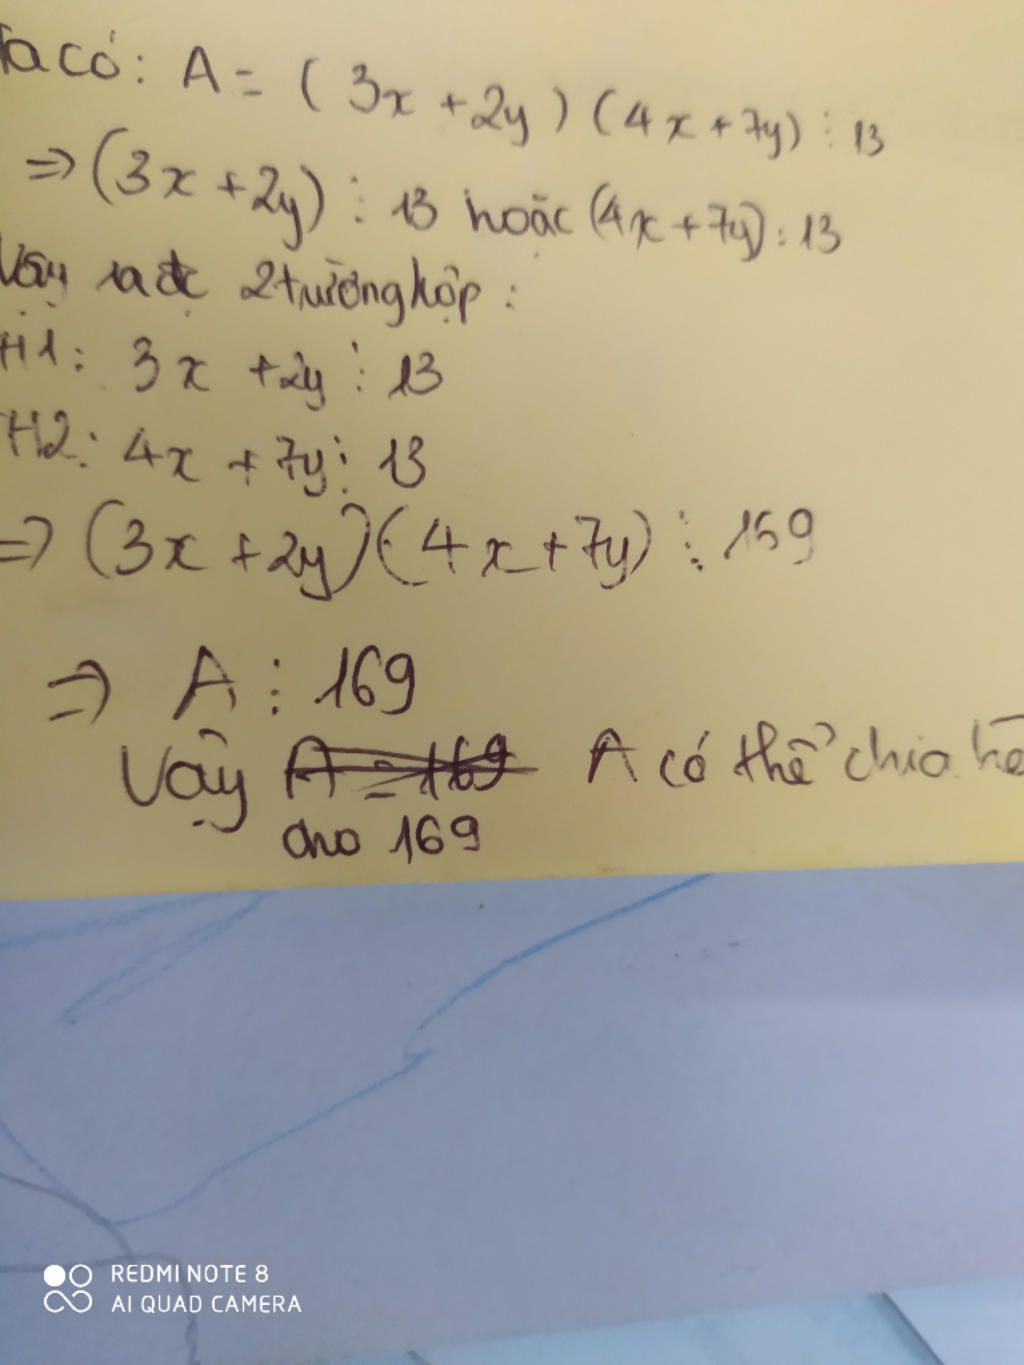 Ta có: A = (3x + 2y)(4x + 7y) ⋮ 13
=> (3x + 2y) ⋮ 13 hoặc (4x + 7y) ⋮ 13
Vậy ta đc 2 trường hợp:
TH1: 3x + 2y ⋮ 13
TH2: 4x + 7y ⋮ 13
=> (3x + 2y)(4x + 7y) ⋮ 169
=> A ⋮ 169
Vậy A = 169 A có thể chia hế
cho 169
REDMI NOTE 8
AI QUAD CAMERA